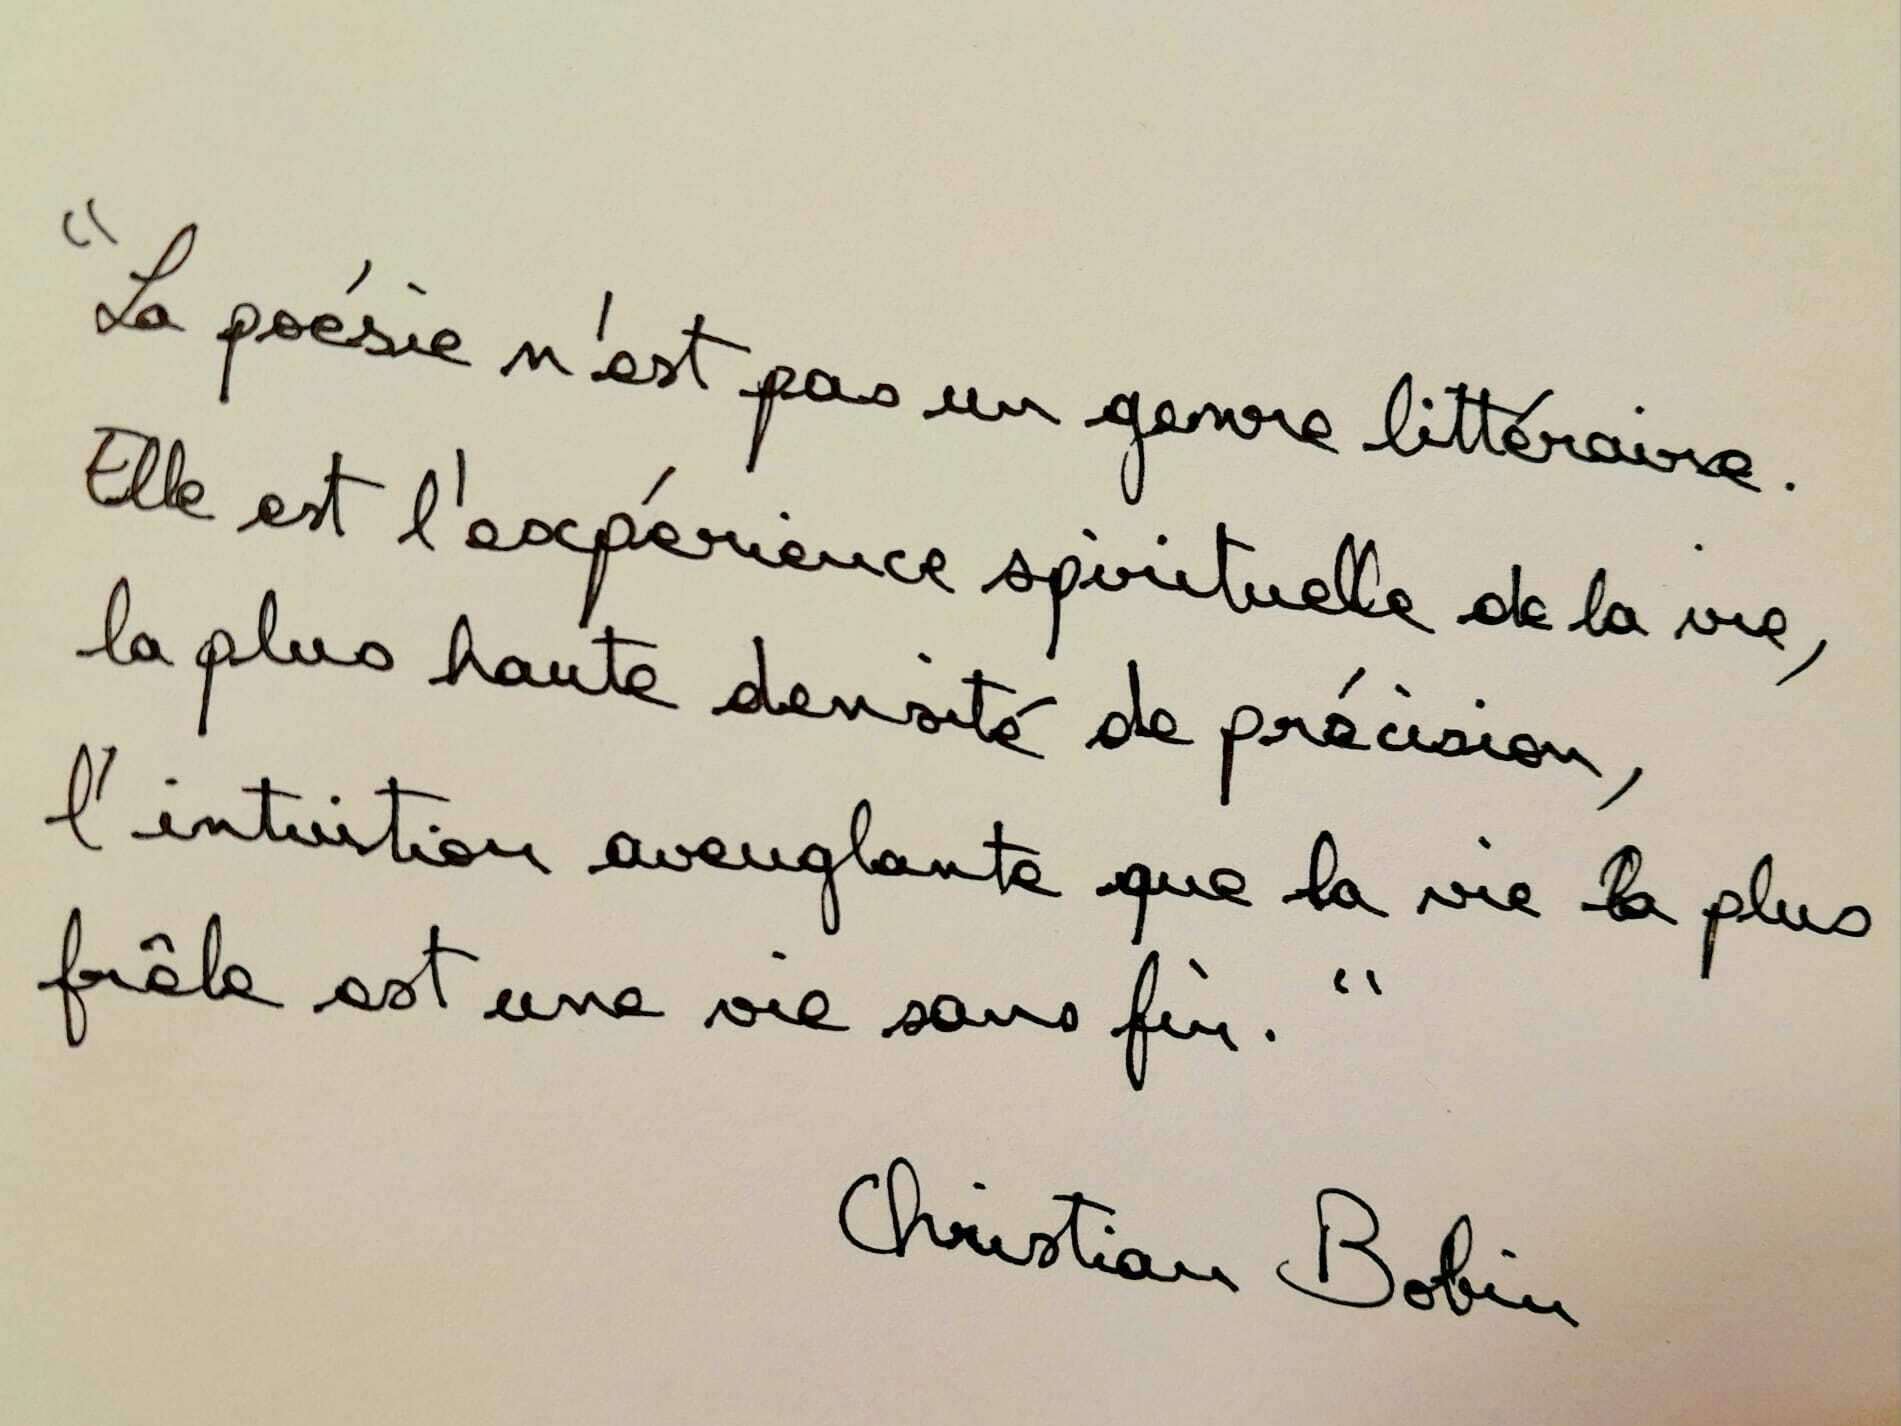 "La poésie n'est pas un genre littéraire.
Elle est l'expérience spirituelle de la vie,
la plus haute densité de précision,
l'intuition aveuglante que la vie la plus
frêle est une vie sans fin."
Christian Bobin